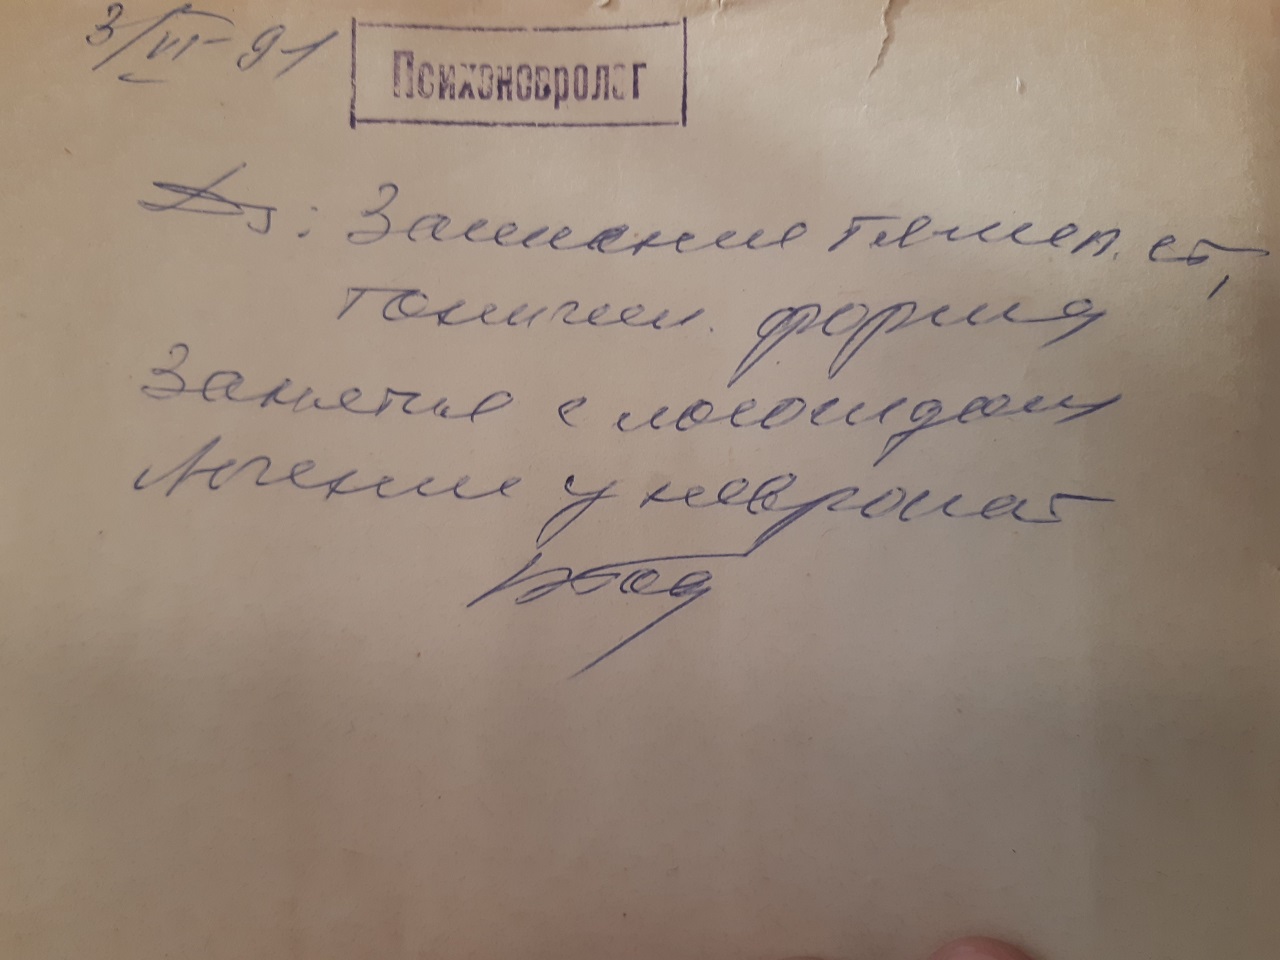 3/VI-91 Психоневролог
Ds: Заикание тяжел. ст,
тоническ. форма
Занятия с логопедом
Лечение у невропат